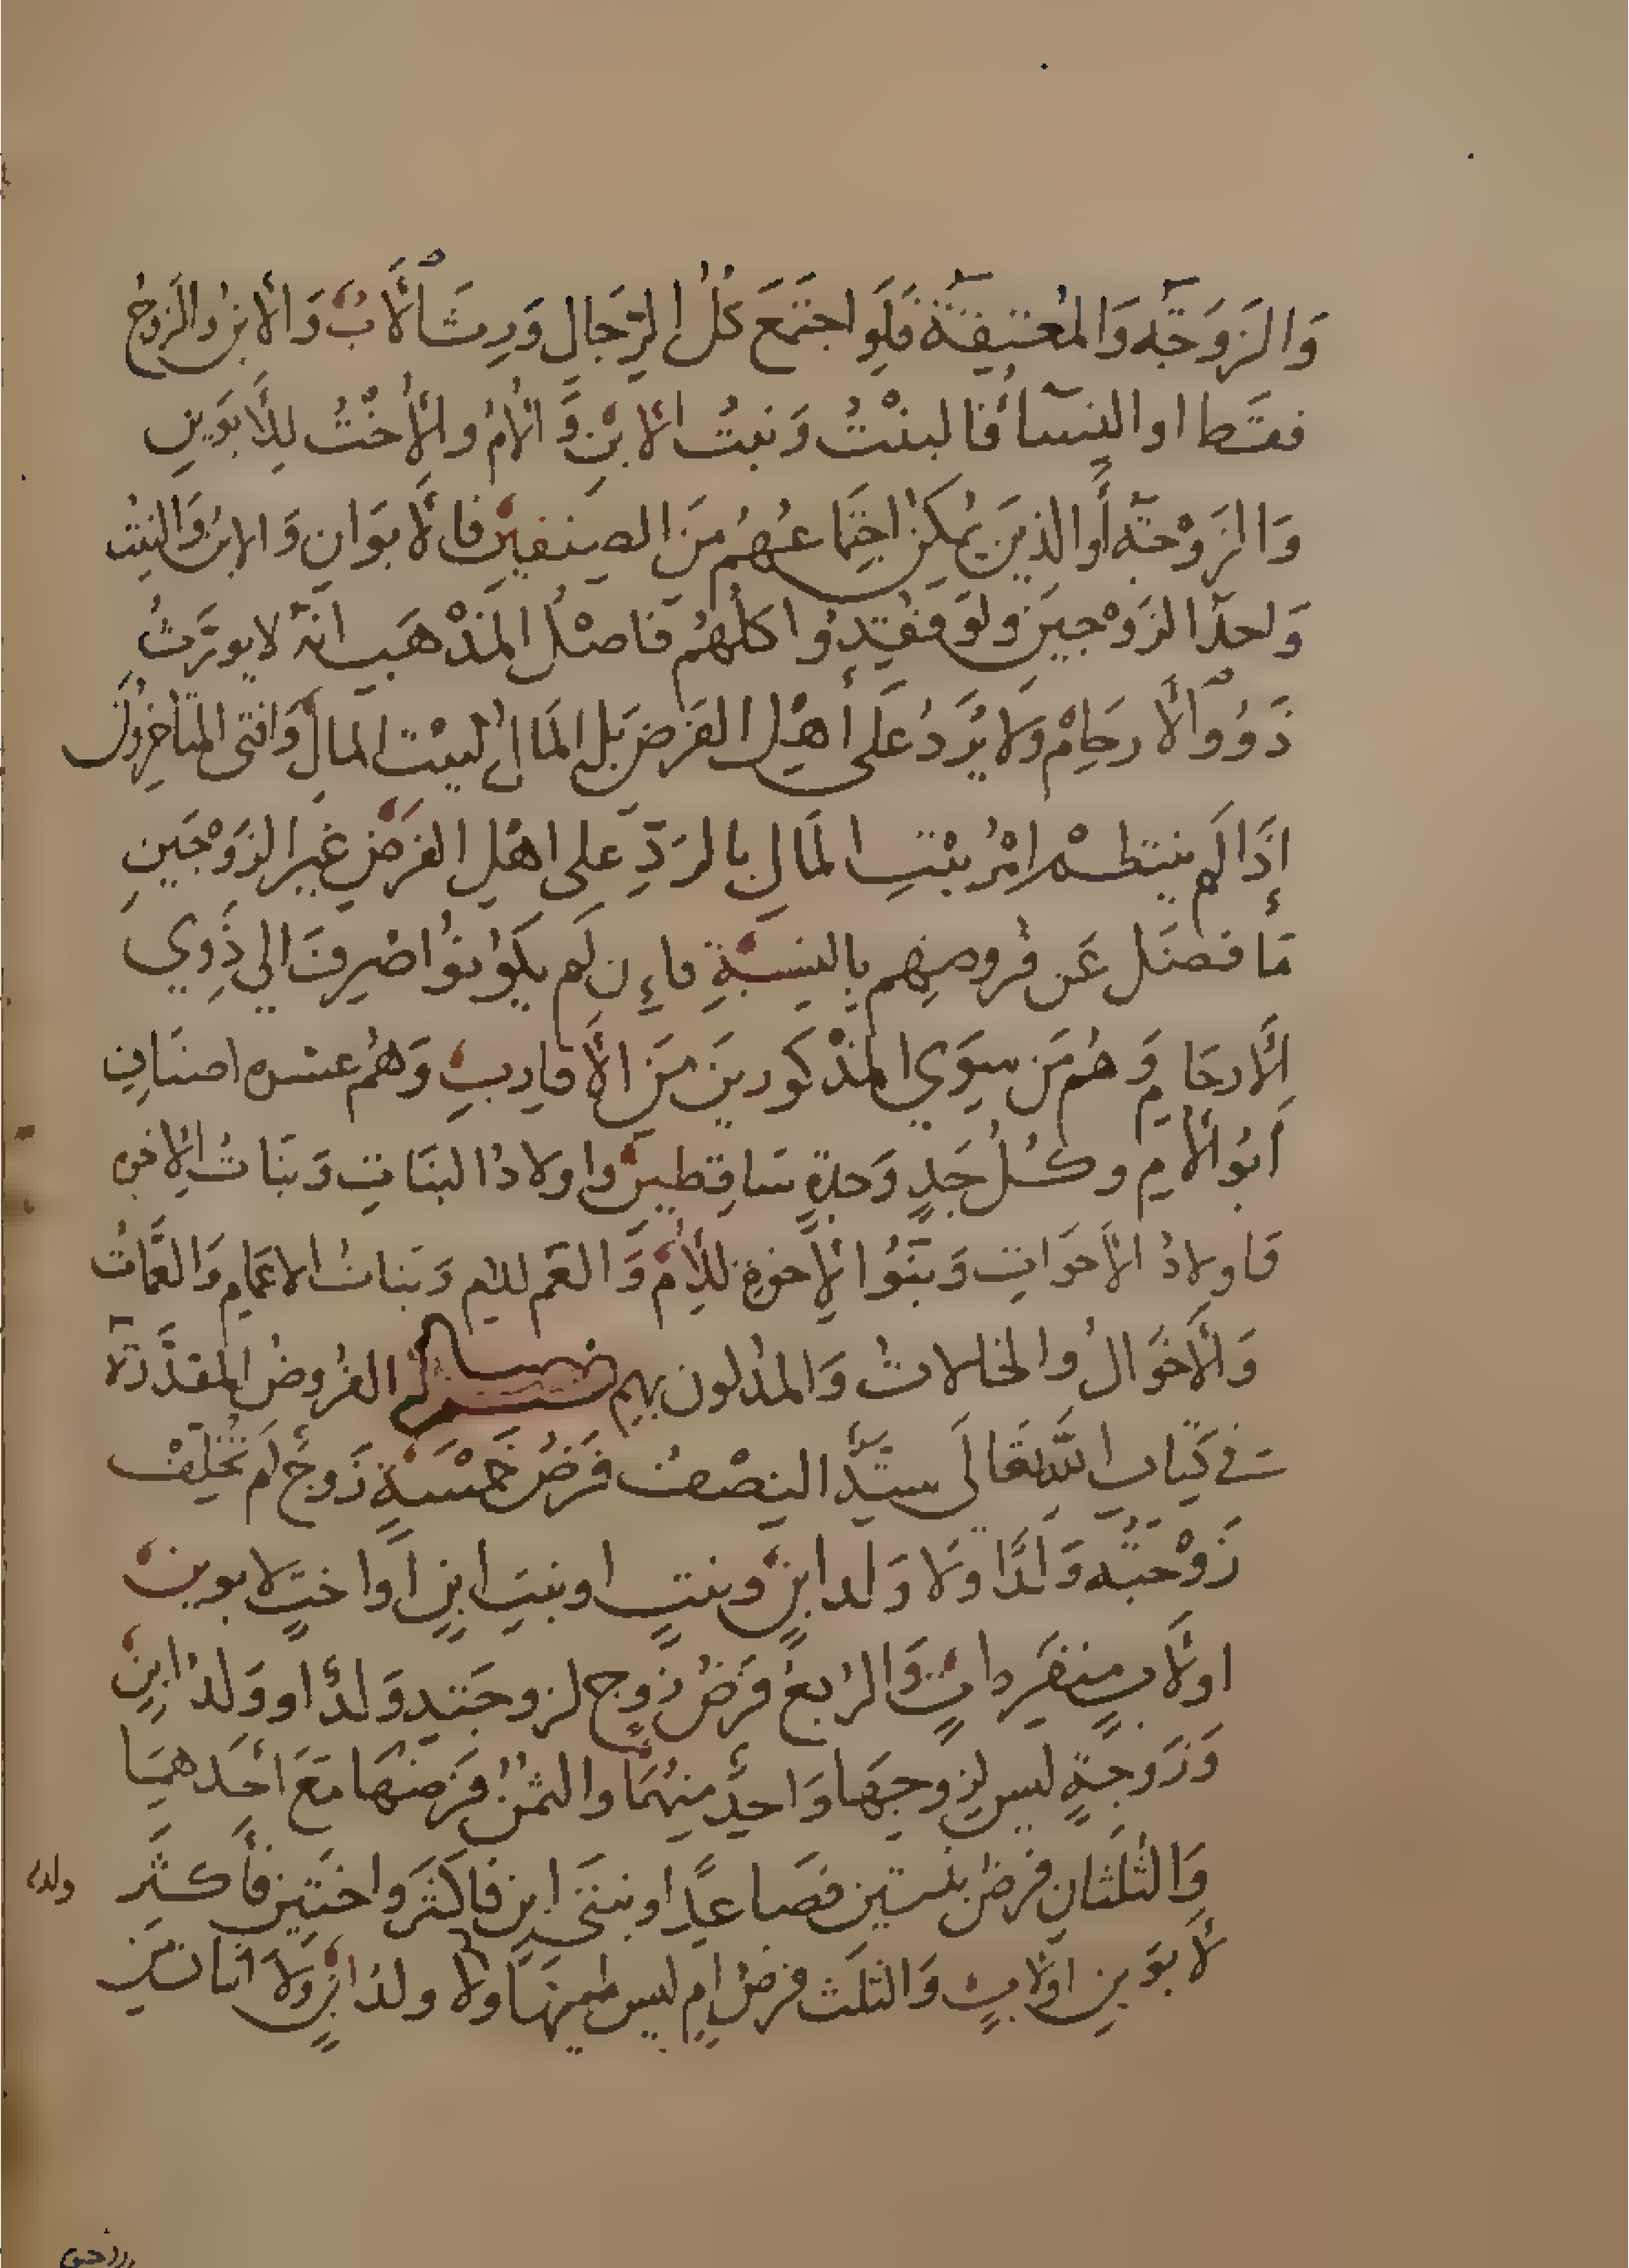 وَالزَوَجَة وَالمُعتِقَة فَلَو اجتَمَعَ كُلُ الرِجَالِ وَرِثَ الأَبُ وَالأبنُ والزَوجُ
فقَط او النِسَأُ فَالبنْتُ وَبنتُ الابْنِ وَالأمُ والأُختُ للأَبَوَينِ
وَالزَوْجَة أَو الذينَ يُمكِنُ اجتِمَاعُهُم مِنَ الصِنفَينِ فالأَبوَانِ وَالابنُ وَالبنتُ
وَاحدُ الزَوْجينِ ولَو فُقِدُوا كلُهُم فَاصْلُ المَذْهَبِ انهُ لا يورَّثُ
ذَوُو الأَرحَامِ وَلا يُرَدُ عَلَى أهْلِ الفَرضِ بَلِ المَالُ لبيْت المالِ وَافتى المتَأخِرُونَ
إذَا لَم ينتظمْ امْرُ بيْتِ المَالِ بالرَدِّ على اهْلِ الفَرضِ غيرَ الزَوْجَينِ
مَا فضَلَ عَن فُروضِهم بالنِسبَةِ فاءِن لَم يكوُنوُا صُرِفَ الى ذَوِي
الأَرحَامِ وَهُم مَن سِوَي المذْكورينَ مِنَ الأَقارِبِ وَهُم عشره اصنَافٍ
اَبُو الأمِ وكُلُ جَدٍ وَجدةٍ سَاقِطينِ واولادُ البنَاتِ وَبَنَاتُ الاخوه
فَاولادُ الأخوَاتِ وَبَنُوا الإخوةِ للأِمِ وَالعَم للام وَبنَاتُ الاعمَامِ وَالعَمَّاتُ
وَالأَخوَالُ والخالاتُ وَالمدْلون بهِم فصل الفُروضُ المقدَّرَة
في كِتابِ اللهِ تعَالَى ستَّة النِصْفُ فَرَضُ خَمْسَةٍ زَوجٌ لَم تُخَلِفْ
زَوْجَتُه وَلدًا وَلا وَلَد ابنٍ وبنتٍ او بنتِ ابنٍ اَو اختٍ لابوينِ
او لأَبٍ منفَرِداتٍ وَالرُبعُ فَرَضُ زَوجٍ لزوجَتِه وَلدٌ او وَلدُ ابنٍ
وَزَوجةٍ ليس لزوجِهَا وَاحدٌ مِنهُمَا والثمْنُ فَرَضهَا مَعَ احَدهمَا
وَالثلثانِ فرضُ بنتينِ فصَاعِدًا او بنتَي ابنٍ فاكثَر واختَينِ فأَكثَر
لأَبوَينِ او لأبٍ وَالثلث فرضُ امٍ ليس لميتهَا ولا ولدُ ابنٍ وَلا اثنان مِن
ولد